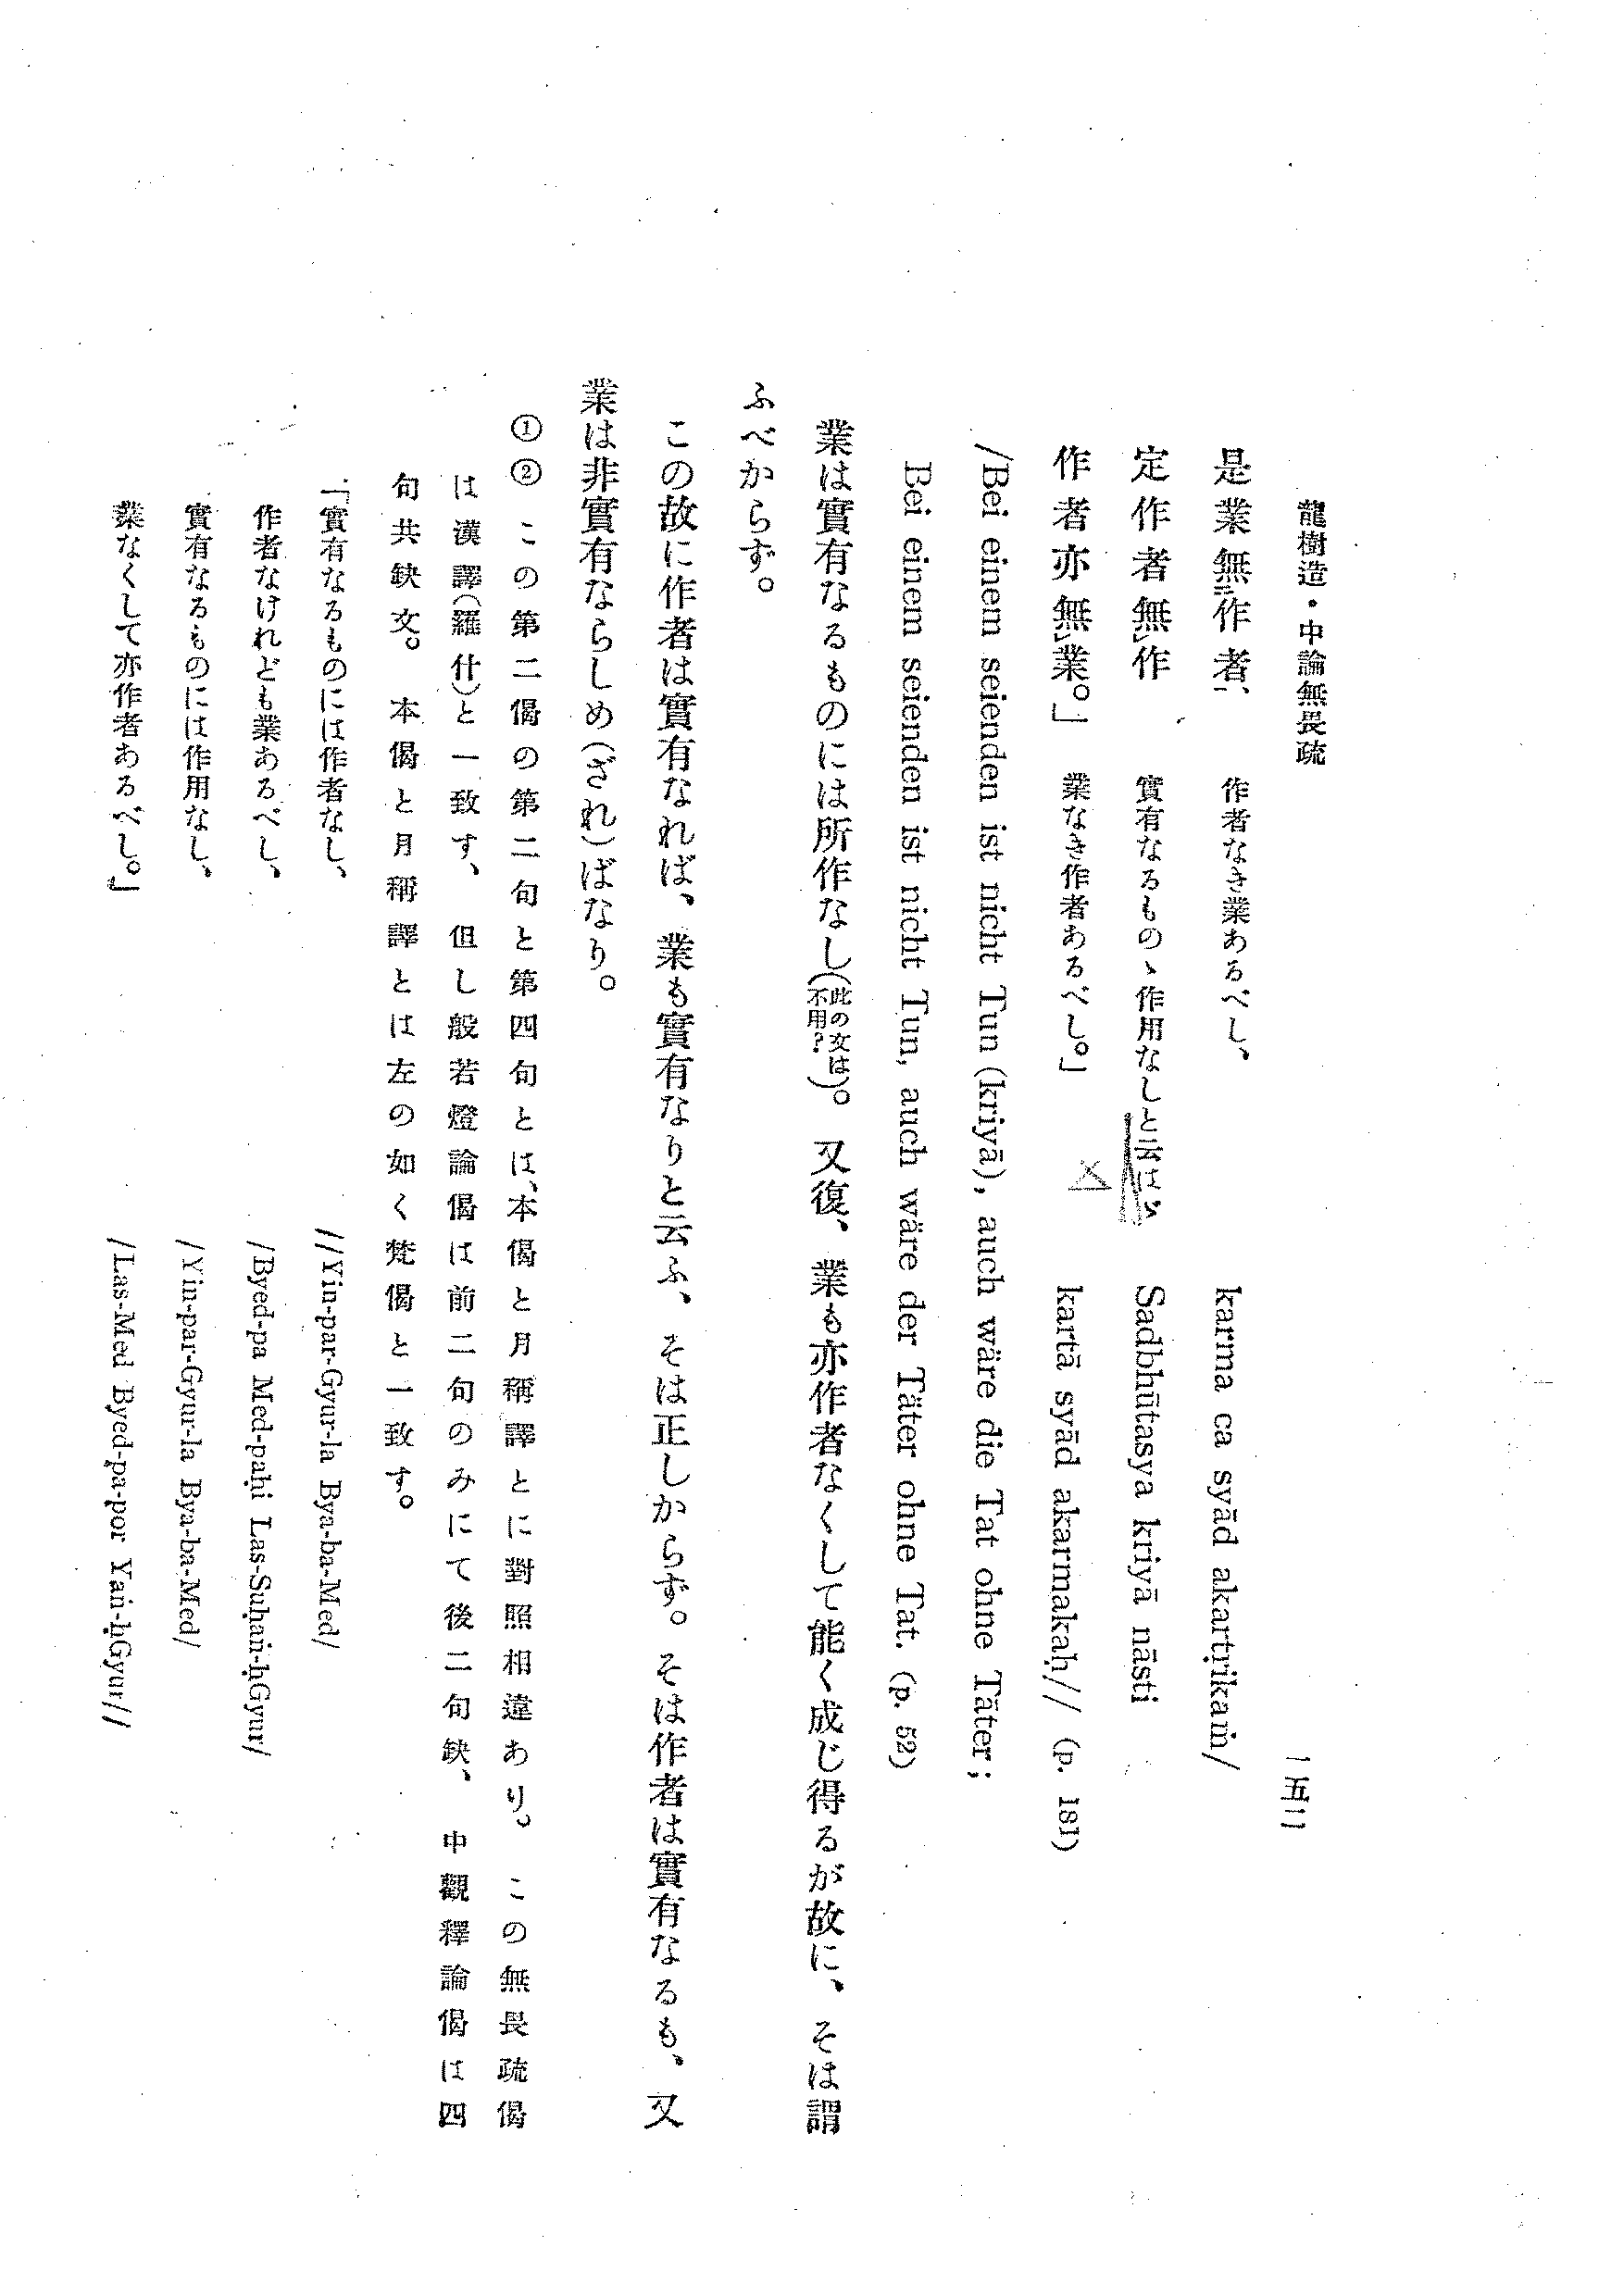 龍樹造・中論無畏疏
一五二
是業無二作者一、
作者なき業あるべし、
karma ca syād akartṛikaṁ/
定作者無レ作
實有なるものゝ作用なしと云はゞ
Sadbhūtasya kriyā nāsti
作者亦無レ業。」
業なき作者あるべし。」
kartā syād akarmakaḥ// (p. 181)
/Bei einem seienden ist nicht Tun (kriyā), auch wäre die Tat ohne Täter;
Bei einem seienden ist nicht Tun, auch wäre der Täter ohne Tat. (p. 52)
業は實有なるものには所作なし(此の文は不用?)。又復、業も亦作者なくして能く成じ得るが故に、そは謂
ふべからず。
この故に作者は實有なれば、業も實有なりと云ふ、そは正しからず。そは作者は實有なるも、又
業は非實有ならしめ(ざれ)ばなり。
①② この第二偈の第二句と第四句とは、本偈と月稱譯とに對照相違あり。この無畏疏偈
は漢譯(羅什)と一致す、但し般若燈論偈は前二句のみにて後二句缺、中觀釋論偈は四
句共缺文。本偈と月稱譯とは左の如く梵偈と一致す。
「實有なるものには作者なし、
//Yin-par-Gyur-la Bya-ba-Med/
作者なけれども業あるべし、
/Byed-pa Med-paḥi Las-Suḥaṅ-ḥGyur/
實有なるものには作用なし、
/Yin-par-Gyur-la Bya-ba-Med/
業なくして亦作者あるべし。」
/Las-Med Byed-pa-por Yaṅ-ḥGyur//